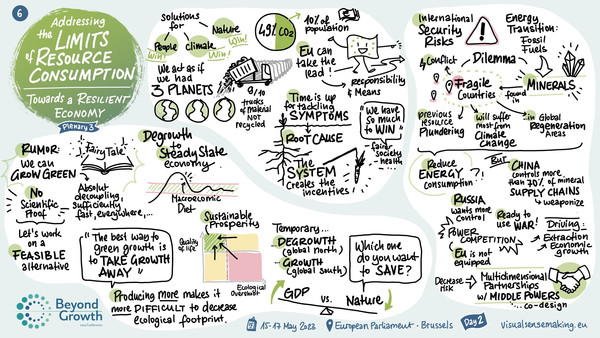 6
Addressing
the LIMITS
of RESOURCE
CONSUMPTION
TOWARDS A RESILIENT
ECONOMY
Plenary 3
solutions
for
People
climate
Nature
Win!
Win!
Win!
We act as if
we had
3 PLANETS
9/10
trucks
of material
NOT
recycled
49% CO2
10% of
population
EU can
take the
lead!
responsibility
& Means
Time is up
for tackling
SYMPTOMS
ROOT CAUSE
The
SYSTEM
creates the
incentives!
"We have
so much
to WIN"
fairer
society
health
International
Security
Risks
Energy
Transition:
Fossil
Fuels
Conflict
Dilemma
Fragile
Countries
found in
MINERALS
previous
resource
Plundering
will suffer
most from
Climate
change
in Global
Regeneration
Areas
Reduce
ENERGY
consumption
?!
But
CHINA
controls more
than 70% of mineral
SUPPLY CHAINS
weaponize
RUSSIA
wants more
control
Ready to
use WAR!
POWER
COMPETITION
EU is not
equipped
Driving:
Extraction
Economic
growth
Decrease
risk
Multidimensional
Partnerships
w/ MIDDLE POWERS
... co-design
RUMOR:
we can
GROW GREEN
FairyTale
No
Scientific
Proof
Absolut
decoupling,
sufficiently
fast, everywhere,...
Let's work
on a
FEASIBLE
alternative
Degrowth
to
Steady State
economy
Macroeconomic
Diet
"The best way to
green growth is
to TAKE GROWTH
AWAY"
Sustainable
Prosperity
Quality
of life
Ecological
Overshoot
Producing more makes it
more DIFFICULT to decrease
ecological footprint.
Temporary...
DEGROWTH
(global north)
GROWTH
(global south)
Which one
do you want
to SAVE?
GDP
vs.
Nature
Beyond
Growth
15-17 May 2023
European Parliament · Brussels
Day 2
visualsensemaking.eu